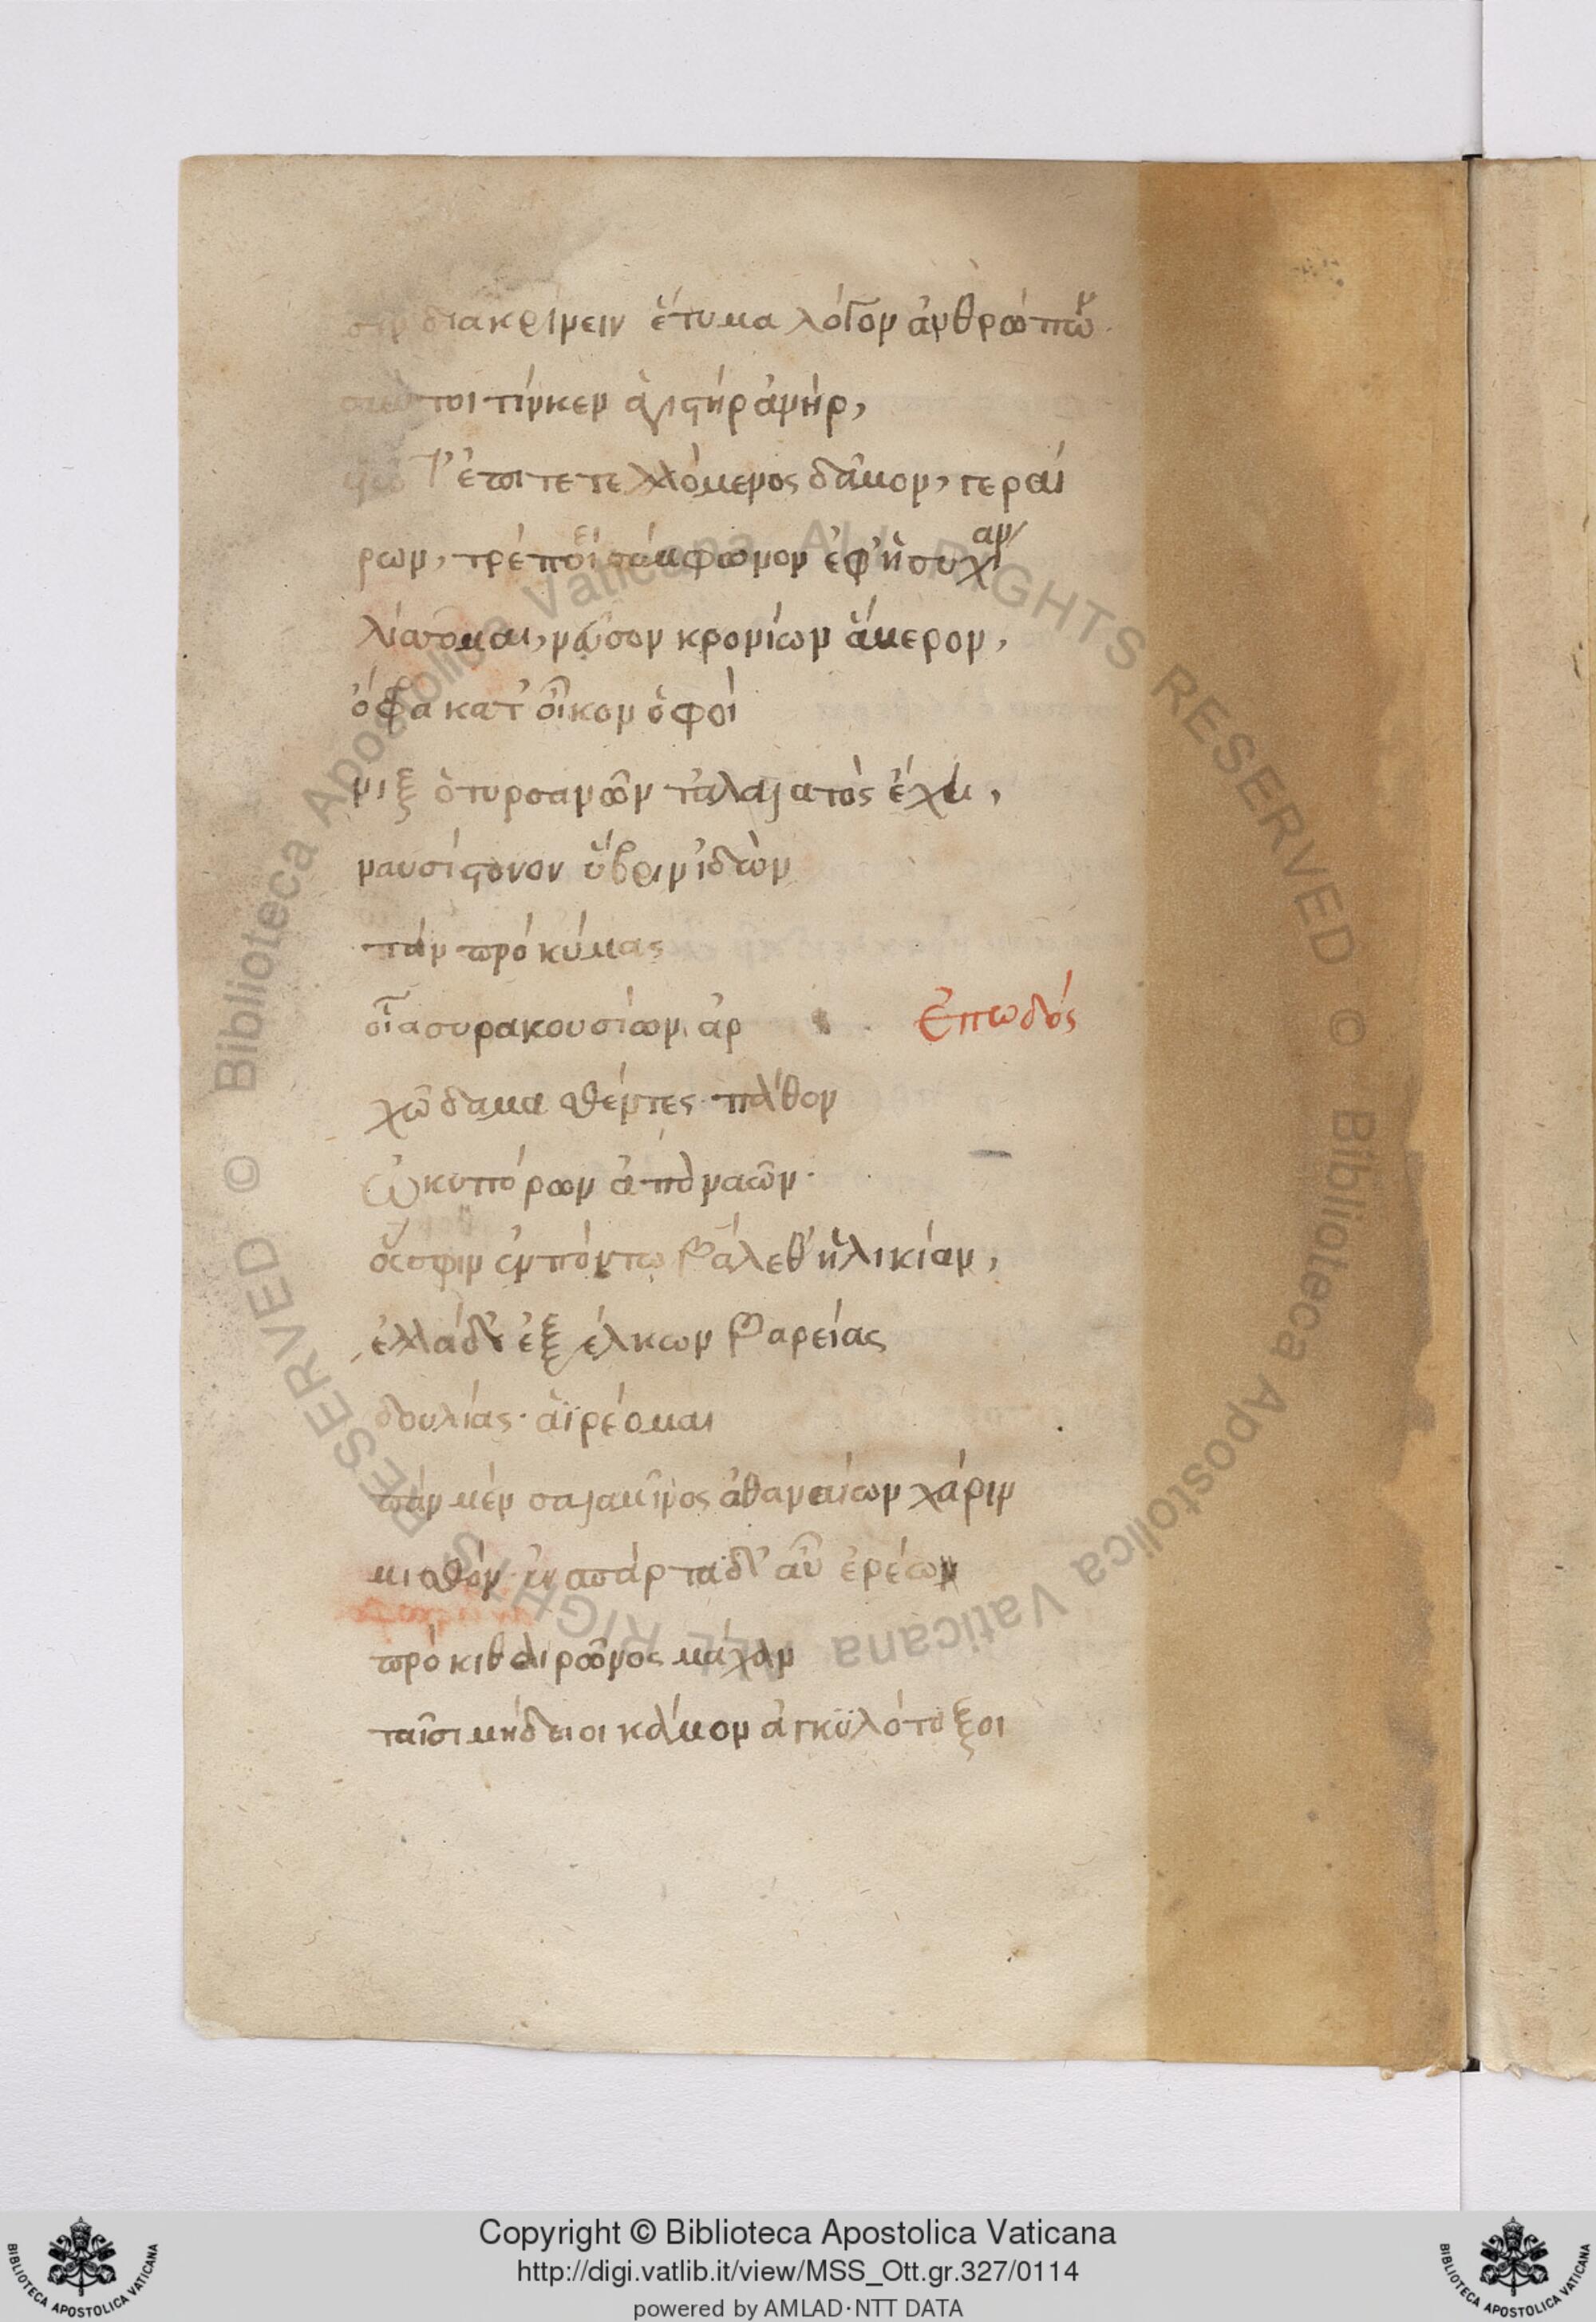 σιν διακρίνειν ἔτυμα λόγον ἀνθρώπων.
σὺν τοι τίνκεν ἁγιστὴρ ἀνὴρ,
υἱῶ τ' ἐπι τετελλόμενος δᾶμον, γεραί
ρων, τρέποι σύμφωνον ἐφ' ἡσυχίαν
λίσσομαι, νεῦσον κρονίων ἅμερον,
ὄφρα κατ' οἶκον ὁ φοῖ
νιξ ὁ τυρσανῶν τ' ἀλαλατὸς ἔχει,
ναυσίστονον ὕβριν ἰδὼν
τὰν πρὸ κύμας
οἷα συρακουσίων ἀρ
Ἐπωδός
χῶ δαμασθέντες πάθον
ὠκυπόρων ἀπὸ ναῶν·
ὅς σφιν ἐν πόντω βάλεθ' ἡλικίαν,
ἑλλάδ' ἐξέλκων βαρείας
δουλίας· αἱρέομαι
πὰν μὲν σαλαμῖνος ἀθαναίων χάριν
μισθὸν· ἐν σπάρτα δ' αὖ ἐρέων
πρὸ κιθαιρῶνος μάχαν
ταῖσι μήδειοι κάμον ἀγκυλότοξοι
Copyright © Biblioteca Apostolica Vaticana
http://digi.vatlib.it/view/MSS_Ott.gr.327/0114
powered by AMLAD·NTT DATA